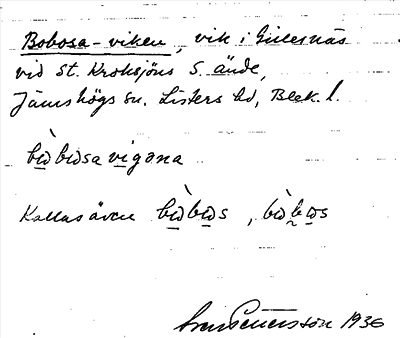 Bobosa-viken, vik i Gillesnäs
vid St. Kroksjöns S. ände,
Jämshögs sn. Listers hd, Blek. l.
bὼbωsa vigəna
Kallas även bὼbωs, bὼbωs
Sven Pettersson 1936